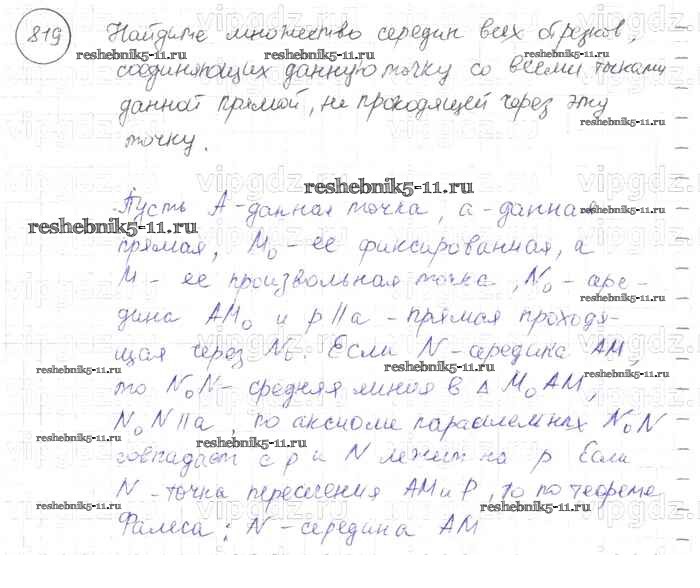 819 Найдите множество середин всех отрезков,
соединяющих данную точку со всеми точками
данной прямой, не проходящей через эту
точку.
reshebnik5-11.ru
Пусть А - данная точка, а - данная
прямая, M₀ - ее фиксированная, а
М - ее произвольная точка, N₀ - сере-
дина AM₀ и p || a - прямая проходя-
щая через N₀. Если N - середина AM,
то N₀N - средняя линия в △ M₀AM,
N₀N || a, по аксиоме параллельных N₀N
совпадает с p и N лежит на p Если
N - точка пересечения AM и P, то по теореме
Фалеса: N - середина AM